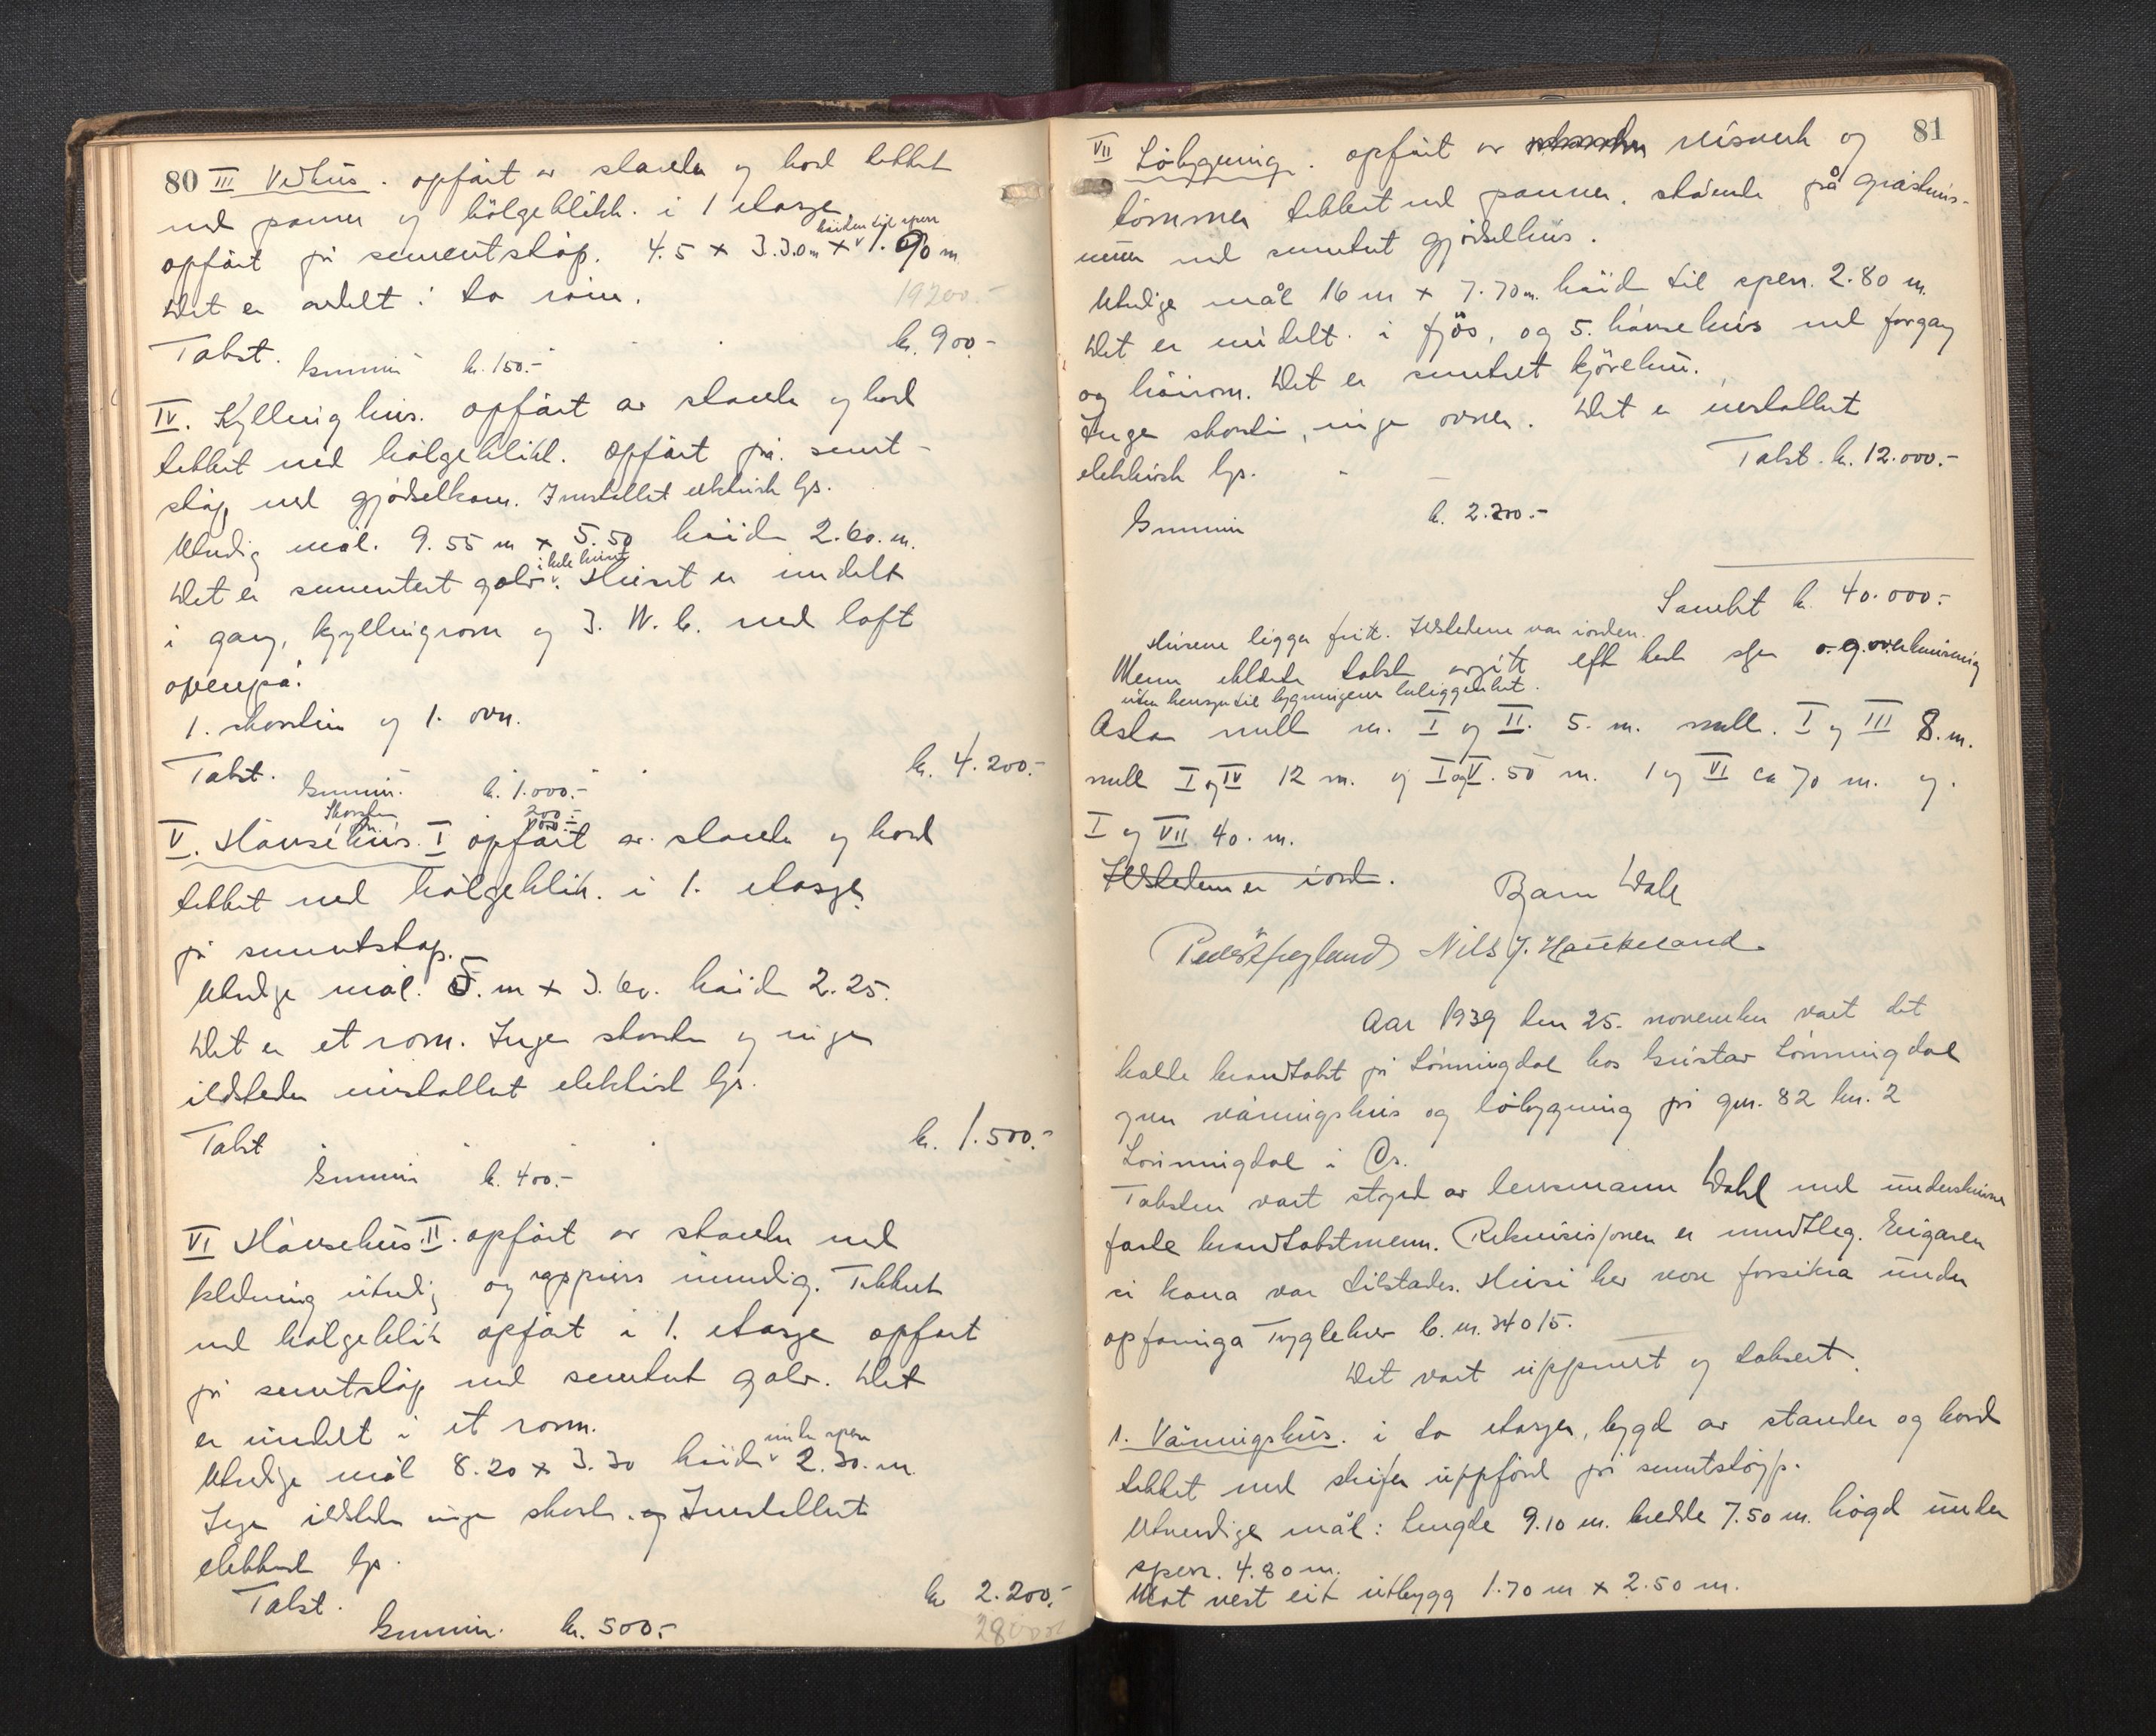 80 III Vedhus. opført av stander og bord tekket
med panner og bølgeblikk. i 1 etasje
høiden til sperr
opført på sementstøp. 4.5 x 3.30 m x 1.90 m
Det er avdelt i to rom.
19200.-
Takst. kr. 900.-
Grunmur kr. 150.-
IV. Kylling hus. opført av stander og bord
tekket med bølgeblikk. Opført på sement-
støp med gjødselkom. Installert elektrisk lys.
Utvendig mål. 9.55 m x 5.50 høide 2.60. m.
i hele huset
Det er sementert golv. Huset er inndelt
i gang, kyllingrom og I. W. C. med loft
ovenpå.
1. skorstein og 1. ovn.
Takst. kr. 4.200.-
Grunmur. kr. 1.000.-
Skorstein 200.-
V. Hønsehus. I opført av stander og bord
tekket med bølgeblik. i 1. etasje
på sementstøp.
Utvendige mål. 5. m x 3.60. høide 2.25.
Det er et rom. Ingen skorsten og ingen
ildsteder installert elektrisk lys.
Takst kr. 1.500.-
Grunmur kr. 400.-
VI Hønsehus. II. opført av stander med
kledning utvendig og innvendig. Tekket
med bølgeblik opført i 1. etasje opført
på sementstøp med sementert golv. Det
er inndelt i et rom.
under sperr
Utvendige mål 8.20 x 3.30 høide 2.30. m.
Ingen ildsteder ingen skorst. og Installert
elektrisk lys.
Takst. kr 2.200.-
Grunmur. kr. 500.-
81
VII Løbygning. opført av reisverk og
tømmer tekket med panner. stående på gråsteins-
mur med sementert gjødselhus.
Utvendige mål 16 m x 7.70 m. høid til sperr. 2.80 m.
Det er inndelt i fjøs, og 5. hønsehus med forgang
og høirom. Det er sementert kjørebru.
Ingen skorstein, ingen ovner. Det er installert
elektrisk lys. Takst. kr. 12.000.-
Grunmur kr. 2.200.-
Samlet kr. 40.000.-
Husene ligger fritt. Ildstedene var i orden.
Menn eklærte takst avgitt efter beste skjøn o. g. overbevisning
uten hensyn til bygningens beliggenhet.
Avstan mell nr. I og II. 5. m. mell. I og III 8. m.
mell I og IV 12 m. og I og V. 50 m. I og VI ca 70 m. og.
I og VII 40. m.
Ildstedene er i orden.
Bjarne Dahl
Nils J. Haukeland
Aar 1939 den 25. november vart det
halde brandtakst på Lønningdal hos Gustav Lønningdal
yver våningshus og løbygning på gnr. 82 bnr. 2
Lønningdal i Os.
Taksten vart styrd av lensmann Dahl med underskrivne
faste brandtakstmenn. Rekvisisjonen er mundtleg. Eigaren
si kona var tilstades. Husi her vore forsikra under
oppfaninga Tyglekver b. nr. 34015.
Det vart uppmælt og taksert.
1. Våningshus. i to etasjer, bygd av stander og bord
tekket med skifer uppførd på sementstøyp.
Utvendige mål: Lengde 9.10 m. bredde 7.50 m. høgd under
sperr. 4.80 m.
Mot vest eit utbygg 1.70 m x 2.50 m.